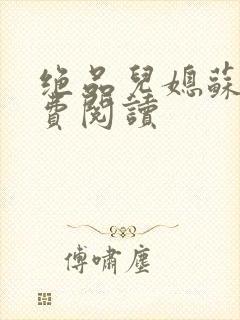 绝品兒媳蘇
費閱讀
傅嘯塵